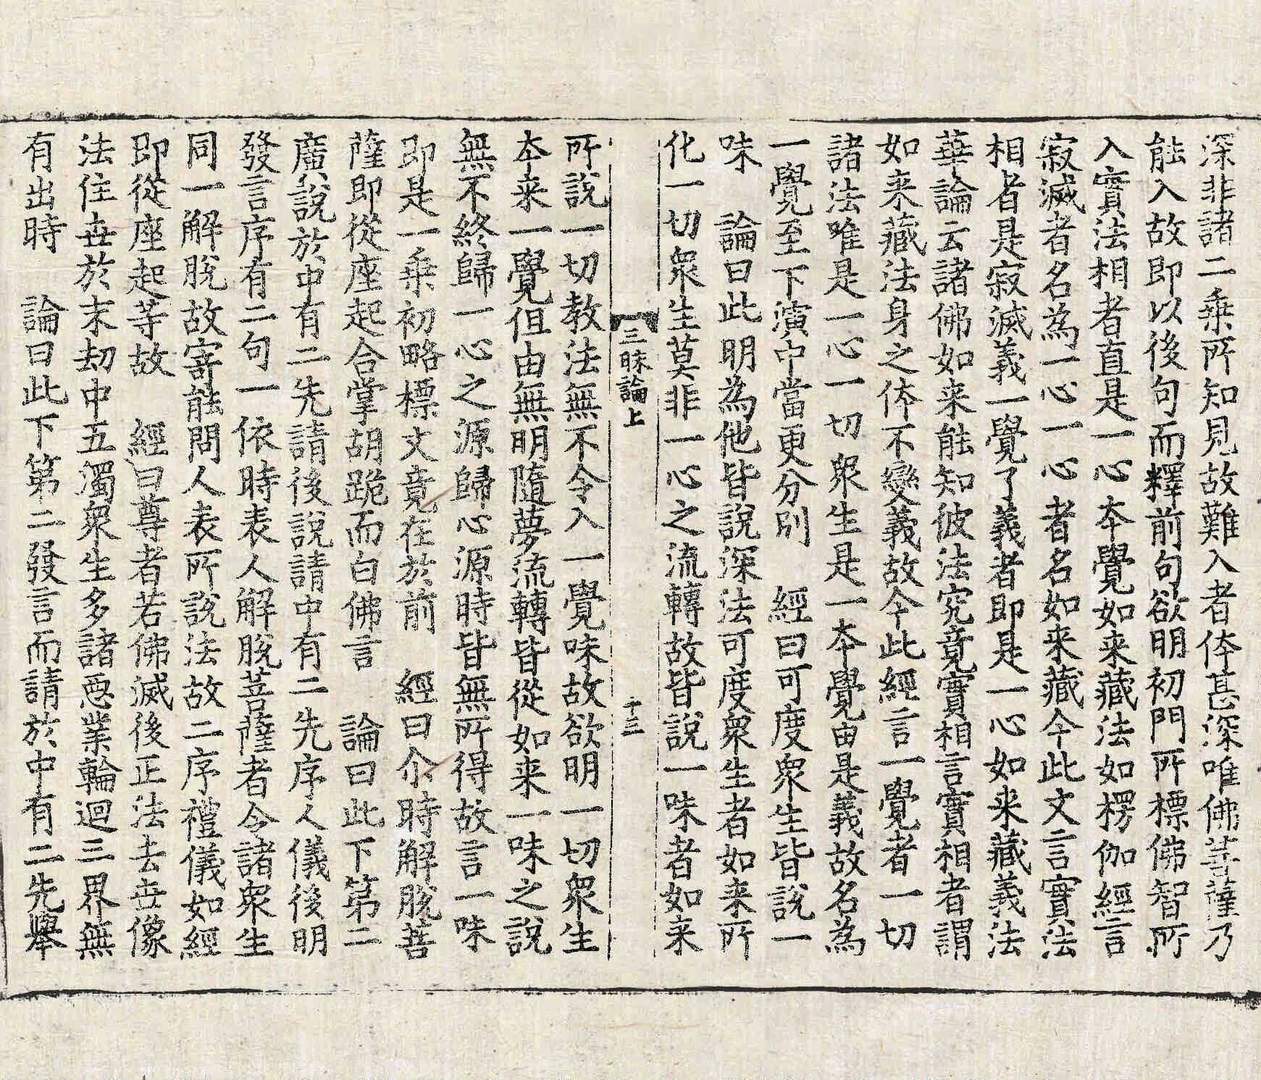 深非諸二乗所知見故難入者体甚深唯佛菩薩乃
能入故即以後句而釋前句欲明初門所標佛智所
入實法相者直是一心本覺如来藏法如楞伽經言
寂滅者名為一心一心者名如来藏今此文言實法
相者是寂滅義一覺了義者即是一心如来藏義法
華論云諸佛如来能知彼法究竟實相言實相者謂
如来藏法身之体不變義故今此經言一覺者一切
諸法唯是一心一切衆生是一本覺由是義故名為
一覺至下演中當更分別　經曰可度衆生皆說一
味　論曰此明為他皆說深法可度衆生者如来所
化一切衆生莫非一心之流轉故皆說一味者如来
三昧論上　十三
所說一切教法無不令入一覺味故欲明一切衆生
本来一覺但由無明隨夢流轉皆從如来一味之說
無不終歸一心之源歸心源時皆無所得故言一味
即是一乗初略標文竟在於前　經曰尒時解脫菩
薩即從座起合掌胡跪而白佛言　論曰此下第二
廣說於中有二先請後說請中有二先序人儀後明
發言序有二句一依時表人解脫菩薩者令諸衆生
同一解脫故寄能問人表所說法故二序禮儀如經
即從座起等故　經曰尊者若佛滅後正法去世像
法住世於末劫中五濁衆生多諸惡業輪迴三界無
有出時　論曰此下第二發言而請於中有二先舉